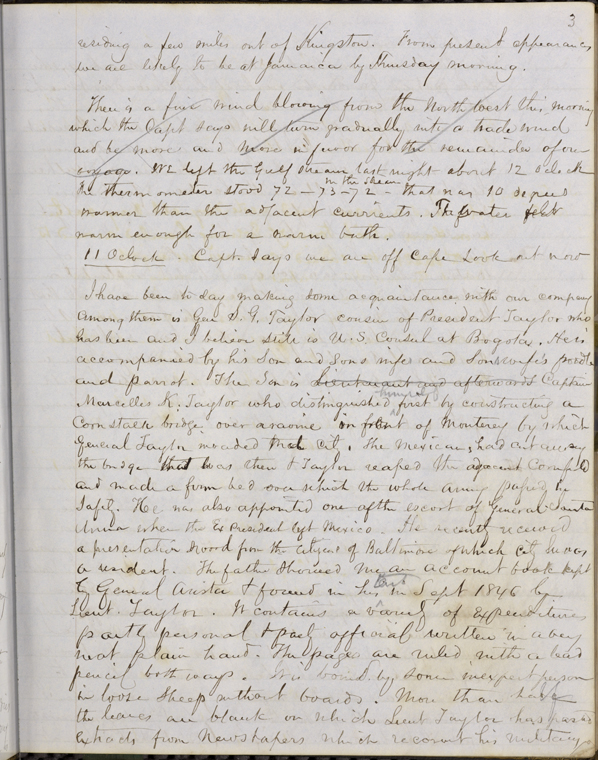 3
residing a few miles out of Kingston. From present appearances
we are likely to be at Jamaica by Thursday morning.
There is a fine wind blowing from the North west this morning
which the Capt says will turn gradually into a trade wind
and be more and more in favor for the remainder of our
voyage. We left the Gulf Stream last night about 12 oclock
the thermometer stood 72 – 73 – 72 – that was 10 degrees
in the stream
warmer than the adjacent currents. The water felt
warm enough for a warm bath.
11 Oclock. Capt. says we are off Cape Look out now
I have been to day making some acquaintance with our company
Among them is Gen D. F. Taylor cousin of President Taylor who
has been and I believe still is U.S. Consul at Bogota. He is
accompanied by his Son and Sons wife and Sonswife's poodle
and parrot. The Son is Lieutenant and afterwards Captain
Marcellus K. Taylor who distinguished first by constructing a
himself
Cornstalk bridge over a ravine in front of Monterey by which
General Taylor invaded that city. The Mexicans had cut away
the bridge that was then & Taylor reaped the adjacent Cornfield
and made a firm bed over which the whole army passed in
safety. He was also appointed one of the escort of General Santa
Anna when the Ex President left Mexico. He recently received
a presentation sword from the Citizens of Baltimore of which city he was
a resident. The father showed me an account book kept
by General Arista & found in his tent in Sept 1846 by
Lieut. Taylor. It contains a variety of Expenditures
partly personal & partly official written in a very
neat plain hand. The pages are ruled with a lead
pencil both ways. It is bound by some inexpert person
in loose sheep without boards. More than half
the leaves are blank on which Lieut Taylor has pasted
extracts from Newspapers which recount his military